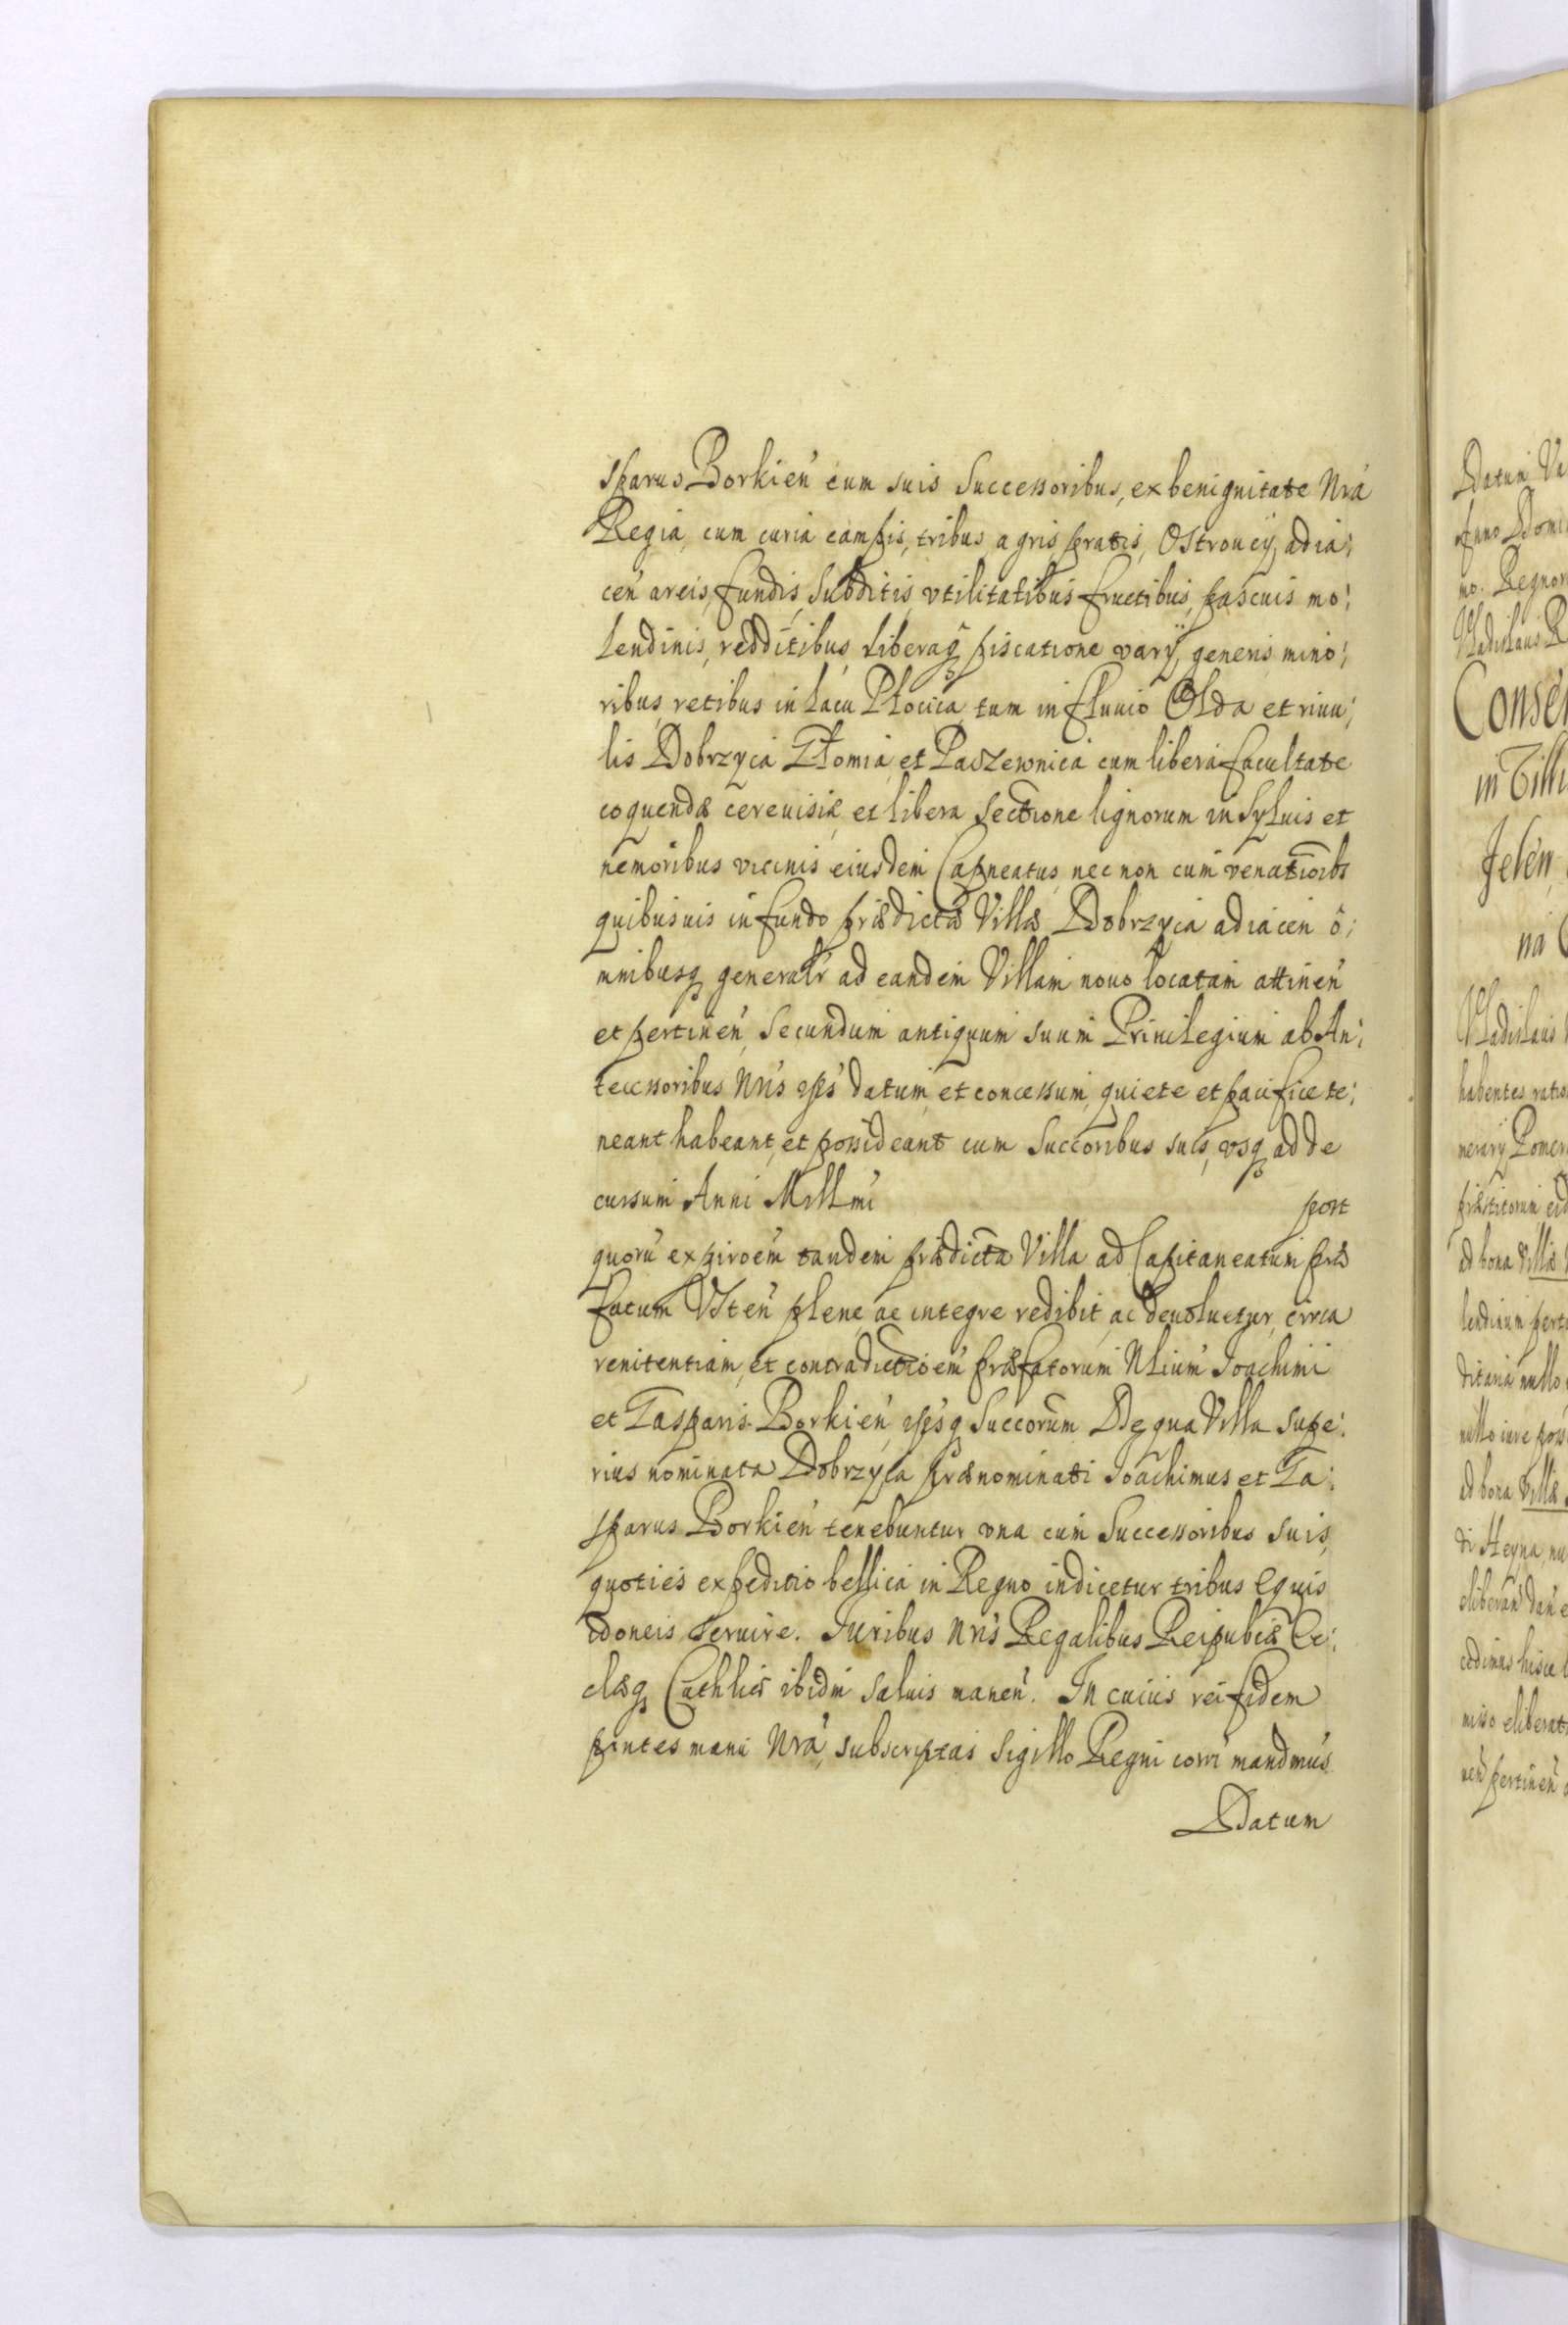 sparus Borkień cum suis Successoribus, ex benignitate Nrá
Regia, cum curia campis, tribus agris, pratis, Ostrouÿ, adia:
ceń areis, fundis, Subditis, vtilitatibus fructibus, pascuis mo:
lendinis, redditibus liberaq́ piscatione varÿ, generis mino:
ribus, retibus in lacu Płocica, tum in fluuio Olda et riuu:
lis Dobrzyca Płomia, et Paszewnica cum libera facultate
coquendæ cereuisiæ, et libera Sectione lignorum in Syluis et
nemoribus vicinis eiusdem Capneatus, nec non cum venatioibs
quibusuis in fundo prædictæ Villæ Dobrzyca adiaceń ô:
mnibusq́ generalr ad eandem Villam nouo locatam attineń
et pertineń, Secundum antiquum suum Priuilegium ab An:
tecessoribus Nrís ipś datum, et concessum, quiete et pacifice te:
neant habeant, et possideant cum Succoribus suis, vsq́ ad de
cursum Anni Millmí
post
quorú expiroém tandem prædicta Villa ad Capitaneatum præ
fatum Vsteń plene, ac integre redibit, ac deuoluetur, circa
renitentiam, et contradictioém præfatorum Nlium Joachimi
et Gasparis Borkień ipsq́ Succorum De qua Villa supe:
rius nominata Dobrzyca prænominati Joachimus et Ga:
sparus Borkień tenebuntur vna cum Successoribus suis,
quoties expeditio bellica in Regno indicetur tribus equis
idoneis seruire. Juribus Nrís Regalibus Reipubcæ Ec:
clæq́ Cathlicæ ibidm saluis maneń. In cuius rei fidem
pŕntes manu Nrá, subscriptas Sigillo Regni comṙi mandmús
Datum
Datum
Anno Domi
no. Regnor
Vladislaus R
Consen
in Villi
Jeleń,
na
Vladislaus
habentes ratio
nerarÿ Pomer
præstitorum, eid
ad bona Villæ
lendinum pert
ditaria nullo
nullo iure pos
ad bona Villæ
di Heyna,
cedimus hisce l
pertineń